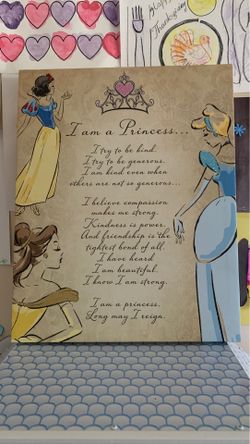 Happy
Thanksgiving
I am a Princess...
I try to be kind.
I try to be generous.
I am kind even when
others are not so generous...
I believe compassion
makes me strong.
Kindness is power.
And friendship is the
tightest bond of all.
I have heard
I am beautiful.
I know I am strong.
I am a princess.
Long may I reign.